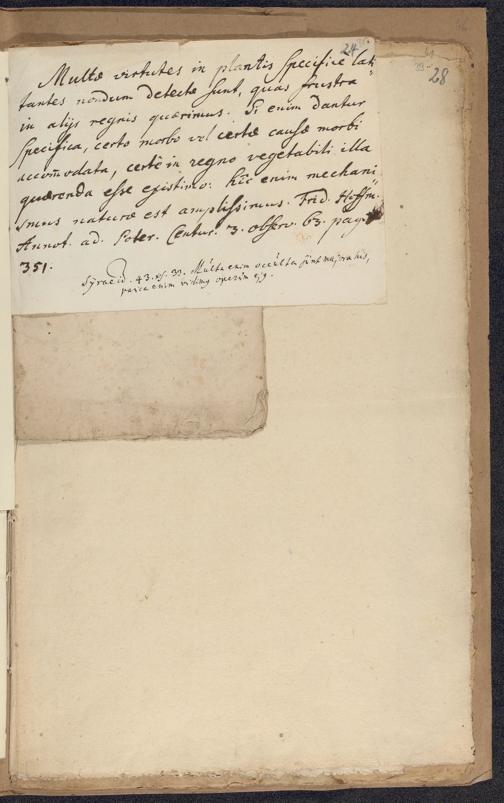 24
28
Multæ virtutes in plantis specificè lati
tantes nondum detectæ sunt, quas frustra
in alijs regnis quærimus. Si enim dantur
specifica, certo morbo vel certæ causæ morbi
accom̃odata, certè in regno vegetabili illa
quærenda esse existimo: hîc enim mechani
smus naturæ est amplissimus. Frid. Hoffm.
Annot. ad. Poter. Centur. 3. observ. 63. pag.
351.
Syracid. 43. vs. 32. Multa enim occulta sunt majora his,
pauca enim vidimus operum ejus.